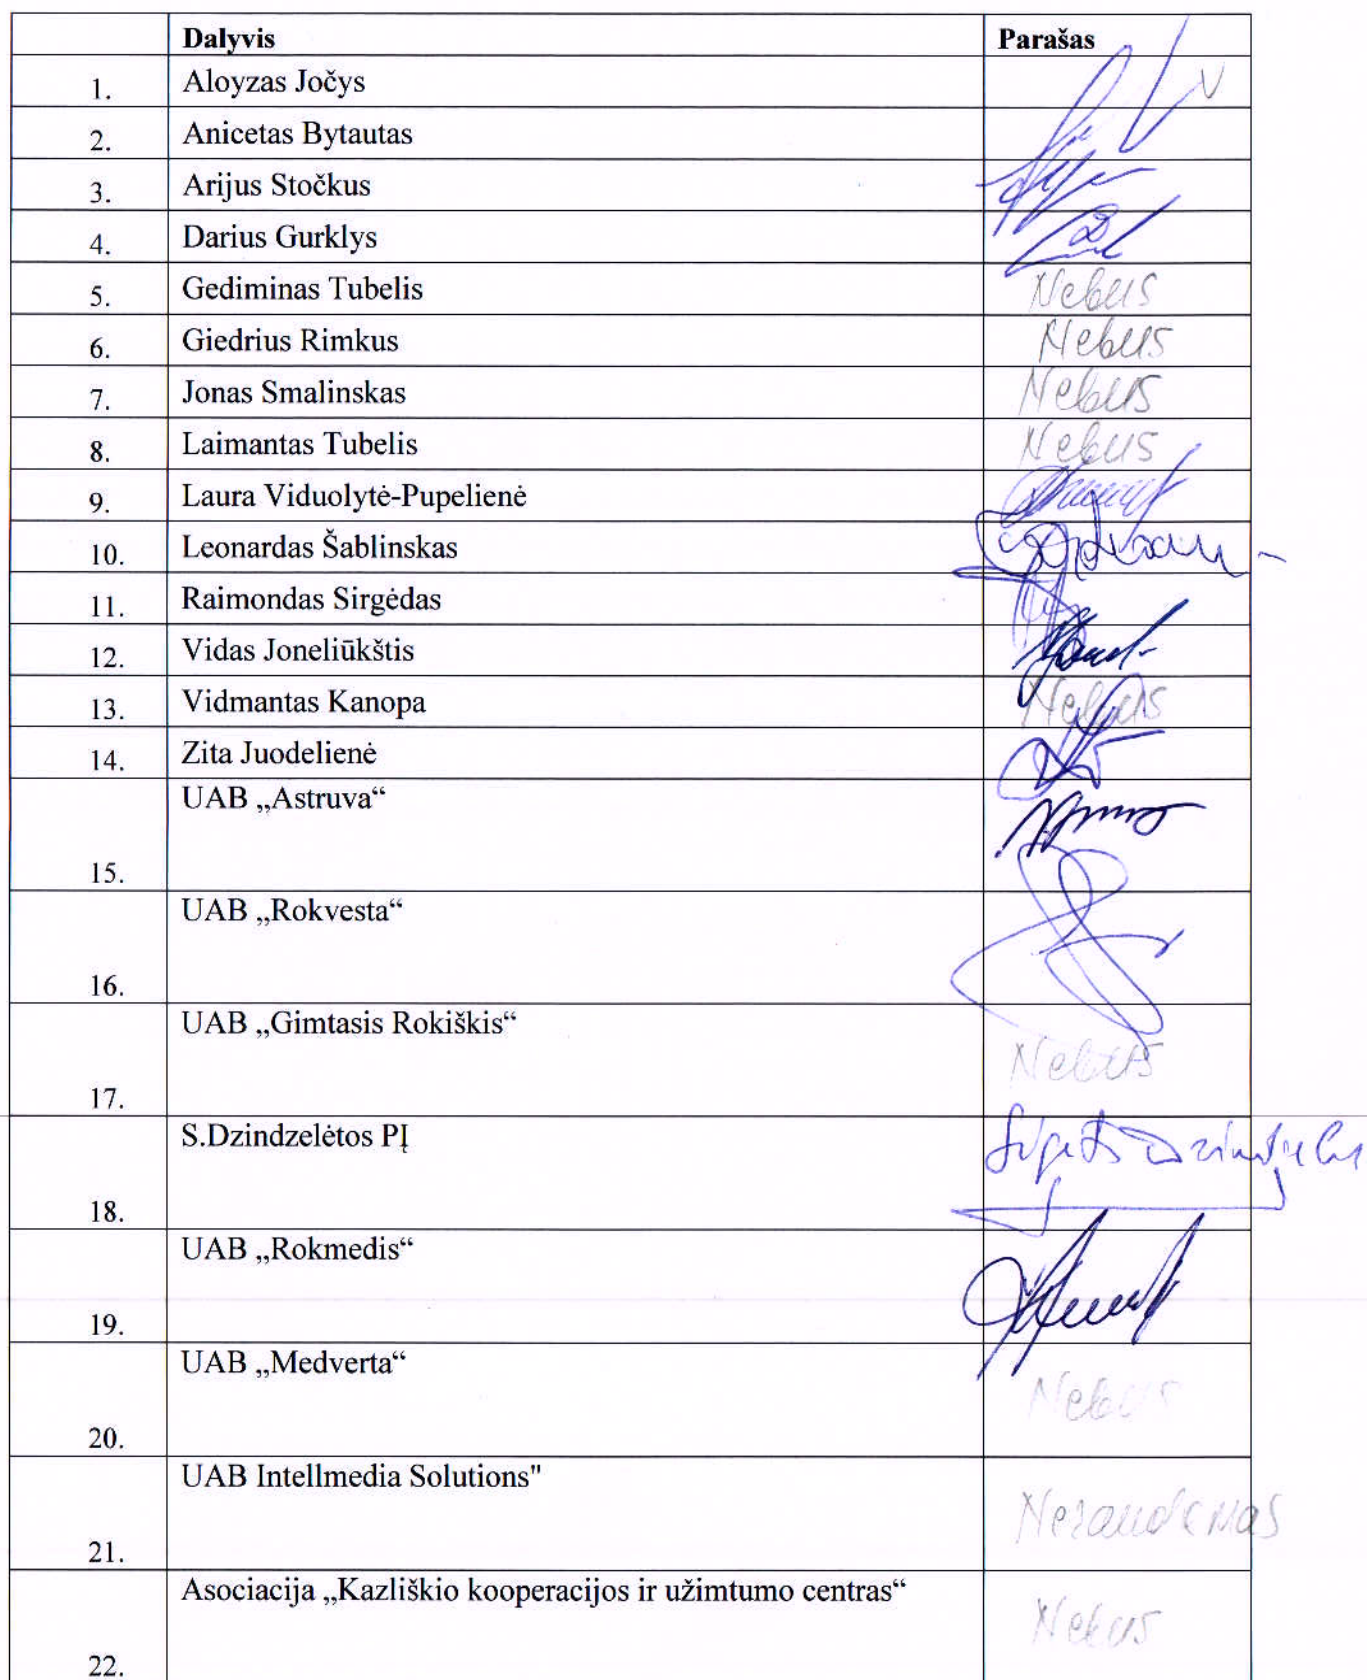 Dalyvis Parašas
1. Aloyzas Jočys V
2. Anicetas Bytautas
3. Arijus Stočkus
4. Darius Gurklys
5. Gediminas Tubelis Nebus
6. Giedrius Rimkus Nebus
7. Jonas Smalinskas Nebus
8. Laimantas Tubelis Nebus
9. Laura Viduolytė-Pupelienė
10. Leonardas Šablinskas
11. Raimondas Sirgėdas
12. Vidas Joneliūkštis
13. Vidmantas Kanopa Nebus
14. Zita Juodelienė
UAB „Astruva“
15.
UAB „Rokvesta“
16.
UAB „Gimtasis Rokiškis“
Nebus
17.
S.Dzindzelėtos PĮ
18.
UAB „Rokmedis“
19.
UAB „Medverta“
Nebus
20.
UAB Intellmedia Solutions"
Nerandamas
21.
Asociacija „Kazliškio kooperacijos ir užimtumo centras“
Nebus
22.